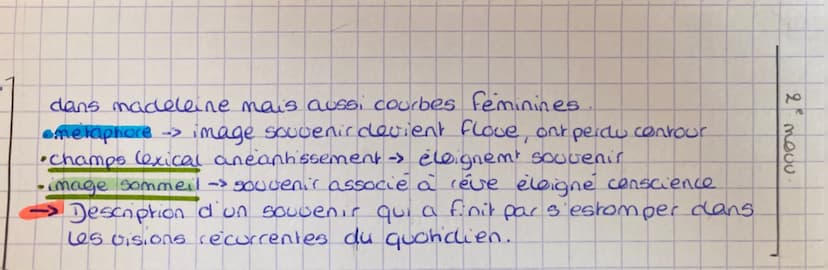 dans madeleine mais aussi courbes féminines.
•métaphore -> image souvenir devient floue, ont perdu contour
•champs lexical anéantissement -> éloignemt souvenir
•image sommeil -> souvenir associé à rêve éloigné conscience
-> Description d'un souvenir qui a finit par s'estomper dans
les visions récurrentes du quotidien.
2e mouv.